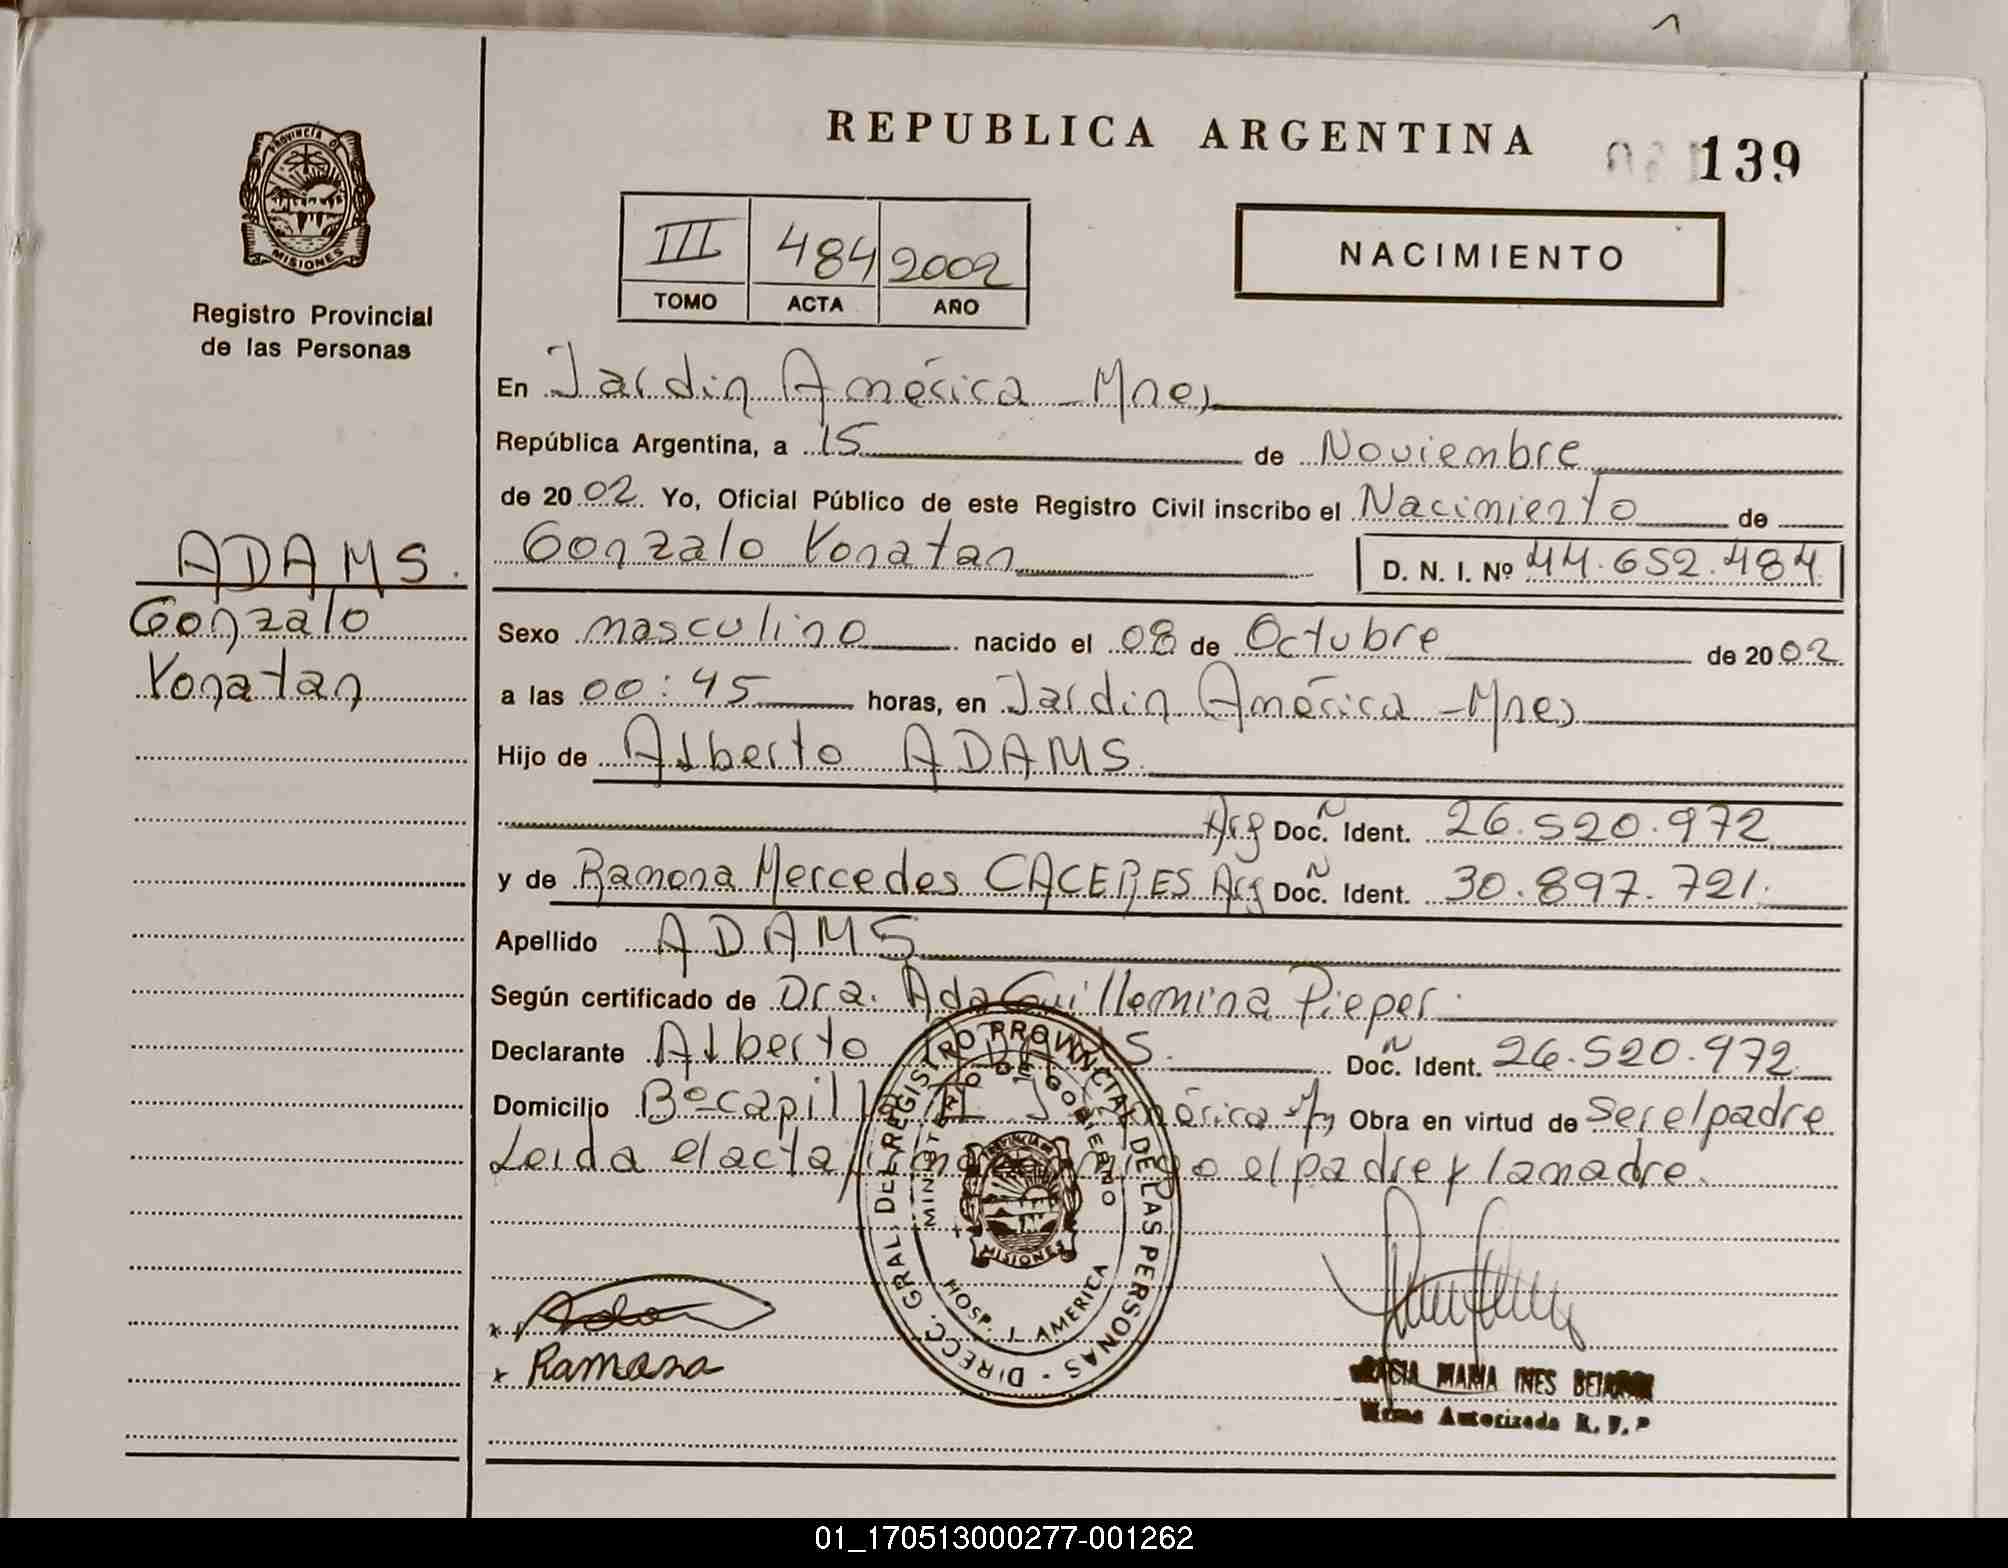 REPUBLICA ARGENTINA
139
PROVINCIA DE
MISIONES
Registro Provincial
de las Personas
III 484 2002
TOMO ACTA AÑO
NACIMIENTO
En Jardin América - Mnes
República Argentina, a 15 de Noviembre
de 2002 Yo, Oficial Público de este Registro Civil inscribo el Nacimiento de
Gonzalo Yonatan D. N. I. Nº 44.652.484
ADAMS.
Gonzalo
Yonatan
Sexo masculino nacido el 08 de Octubre de 2002
a las 00:45 horas, en Jardin América - Mnes
Hijo de Alberto ADAMS
Arg Doc. N Ident. 26.520.972
y de Ramona Mercedes CACERES Arg Doc. N Ident. 30.897.721.
Apellido ADAMS
Según certificado de Dra. Ada Guillermina Pieper.
Declarante Alberto S. Doc. N Ident. 26.520.972
Domicilio Bº capill América Obra en virtud de ser el padre
Leida el acta el padre y la madre.
DIREC. GRAL. DEL REGISTRO PROVINCIAL DE LAS PERSONAS
MINISTERIO DE GOBIERNO
HOSP. J. AMERICA
MISIONES
x Ramona
MARIA INES
Autorizada R. P. P
01_170513000277-001262